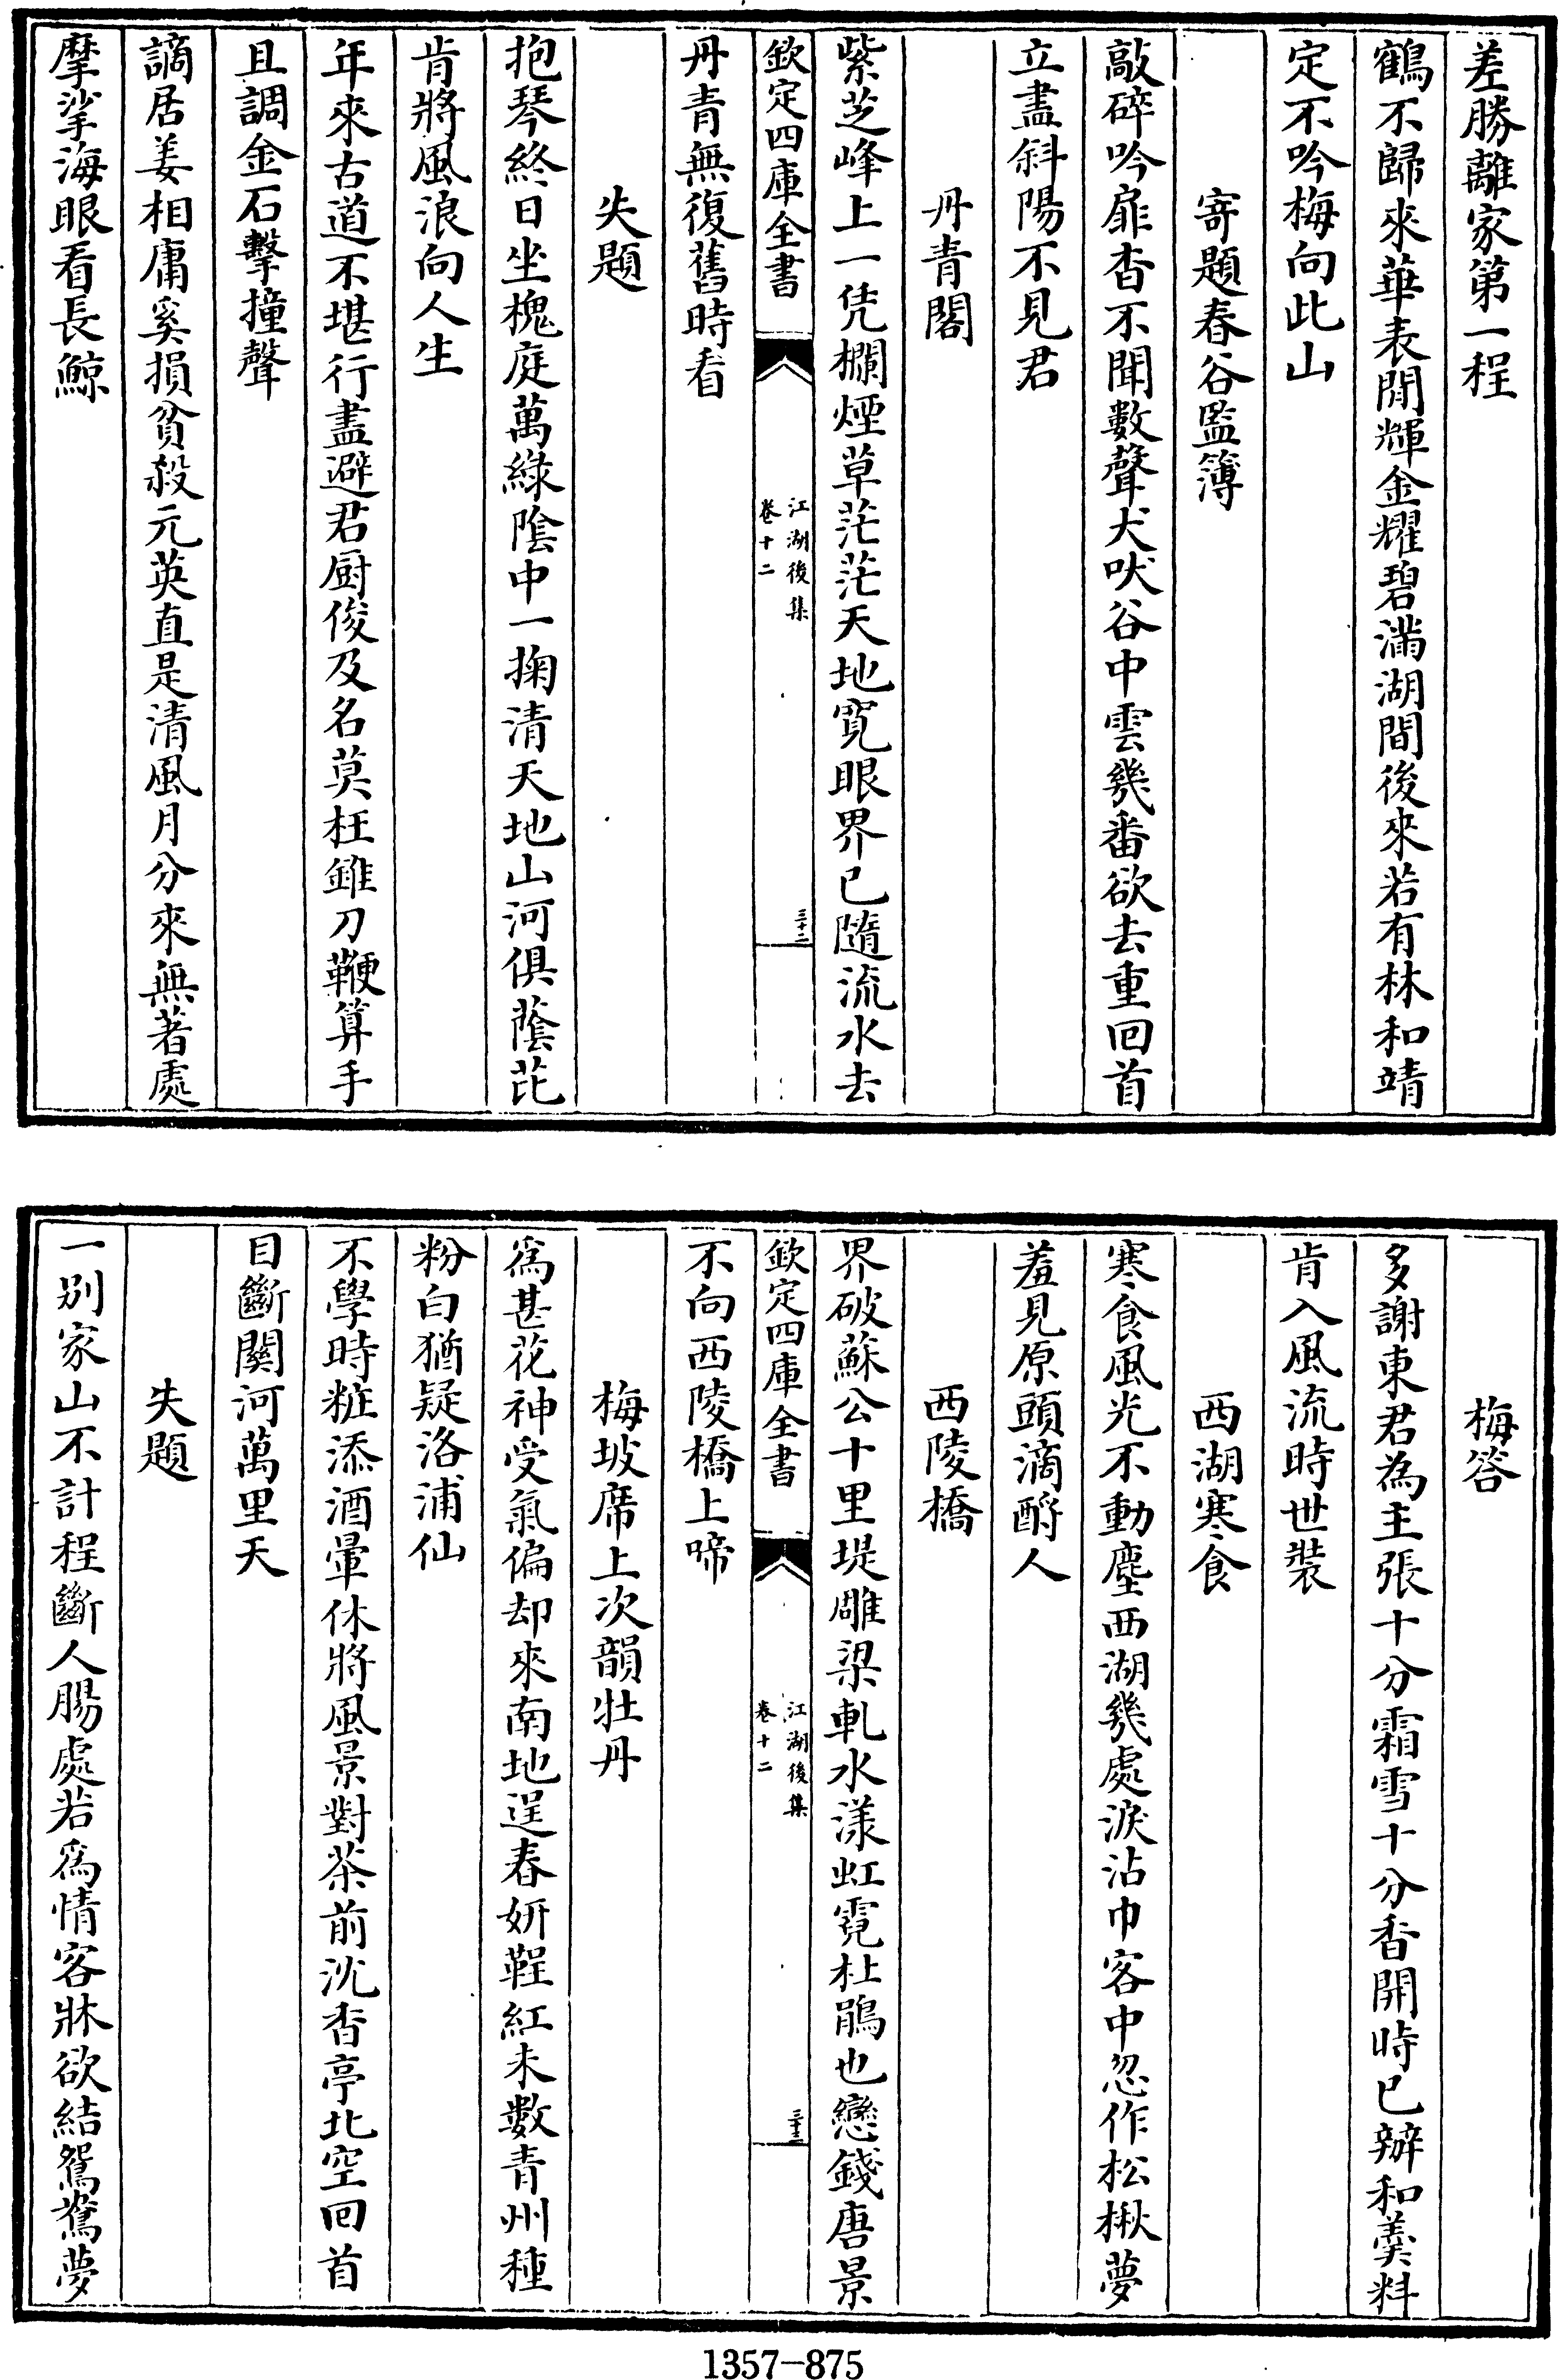 差勝離家第一程
鶴不歸來華表閒輝金耀碧滿湖間後來若有林和靖
定不吟梅向此山
寄題春谷監簿
敲碎吟扉杳不聞數聲犬吠谷中雲幾番欲去重回首
立盡斜陽不見君
丹青閣
紫芝峰上一凭欄煙草茫茫天地寛眼界已隨流水去
欽定四庫全書
江湖後集
卷十二
三十二
丹青無復舊時看
失題
抱琴終日坐槐庭萬緑陰中一掬清天地山河俱蔭芘
肯將風浪向人生
年來古道不堪行盡避君厨俊及名莫枉錐刀鞭算手
且調金石擊撞聲
謫居姜相庸奚損貧殺元英直是清風月分來無著處
摩挲海眼看長鯨
梅答
多謝東君為主張十分霜雪十分香開時已辦和羮料
肯入風流時世裝
西湖寒食
寒食風光不動塵西湖幾處淚沾巾客中忽作松楸夢
羞見原頭滴酹人
西陵橋
界破蘇公十里堤雕梁軋水漾虹霓杜鵑也戀錢唐景
欽定四庫全書
江湖後集
卷十二
三十三
不向西陵橋上啼
梅坡席上次韻牡丹
爲甚花神受氣偏却來南地逞春妍鞓紅未數青州種
粉白猶疑洛浦仙
不學時粧添酒暈休將風景對茶前沈香亭北空回首
目斷關河萬里天
失題
一别家山不計程斷人腸處若爲情客牀欲結鴛鴦夢
1357-875